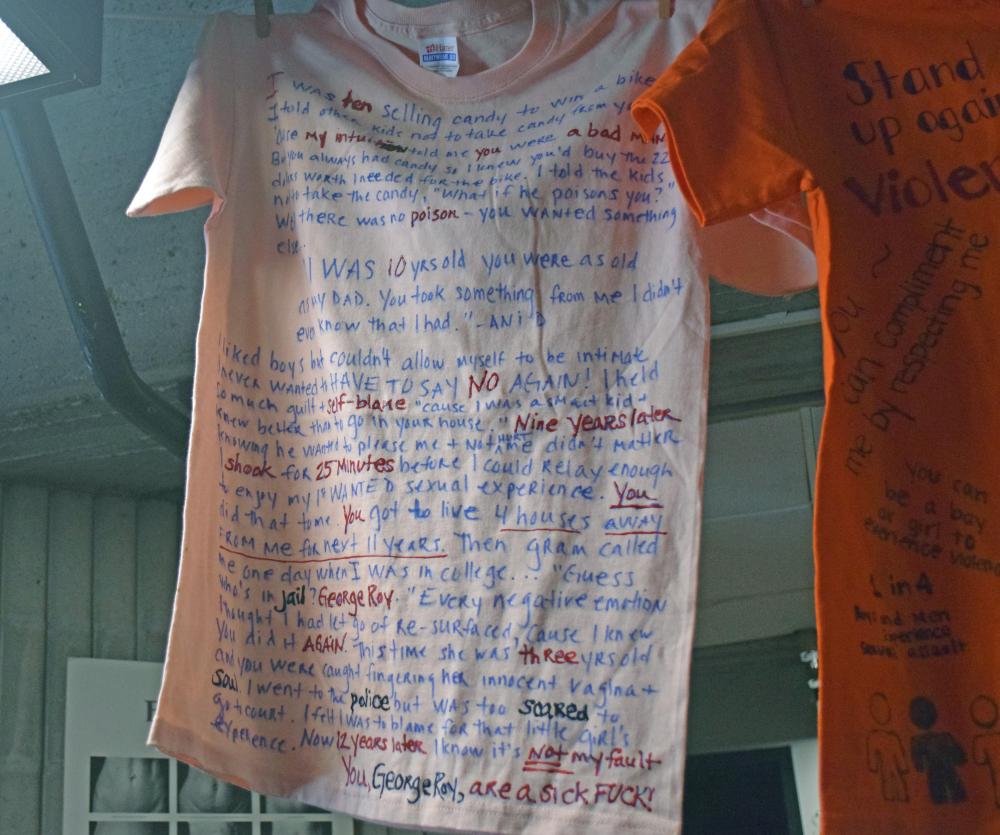 I was ten selling candy to win a bike
I told other kids not to take candy from
'cause my intuition told me you were a bad MAN
But you always had candy so I knew you'd buy the 22
dollars worth I needed for the bike. I told the kids
not to take the candy, "What if he poisons you?"
there was no poison - you WANTED something
else.
"I WAS 10 yrs old you were as old
as my DAD. You took something from me I didn't
even know that I had." - ANi D
I liked boys but couldn't allow myself to be intimate
I never wanted to HAVE TO SAY NO AGAIN! I held
so much guilt + self-blame "cause I was a smart kid +
knew better than to go in your house." Nine years later
knowing he wanted to please me + not HURT me didn't matter
I shook for 25 minutes before I could relax enough
to enjoy my 1st WANTED sexual experience. You
did that to me. You got to live 4 houses away
FROM me for next 11 years. Then gram called
me one day when I was in college... "Guess
who's in jail? George Roy." Every negative emotion
I thought I had let go of re-surfaced, 'cause I knew
You did it AGAIN. This time she was three yrs old
and you were caught fingering her innocent vagina +
soul. I went to the police but was too scared to
go to court. I felt I was to blame for that little girl's
experience. Now 12 years later I know it's NOT my fault
You, George Roy, are a sick FUCK!
Stand
up again
Violen
~
You
can compliment
me by respecting me
You can
be a boy
or girl to
experience violence
1 in 4
men
experience
sexual assault